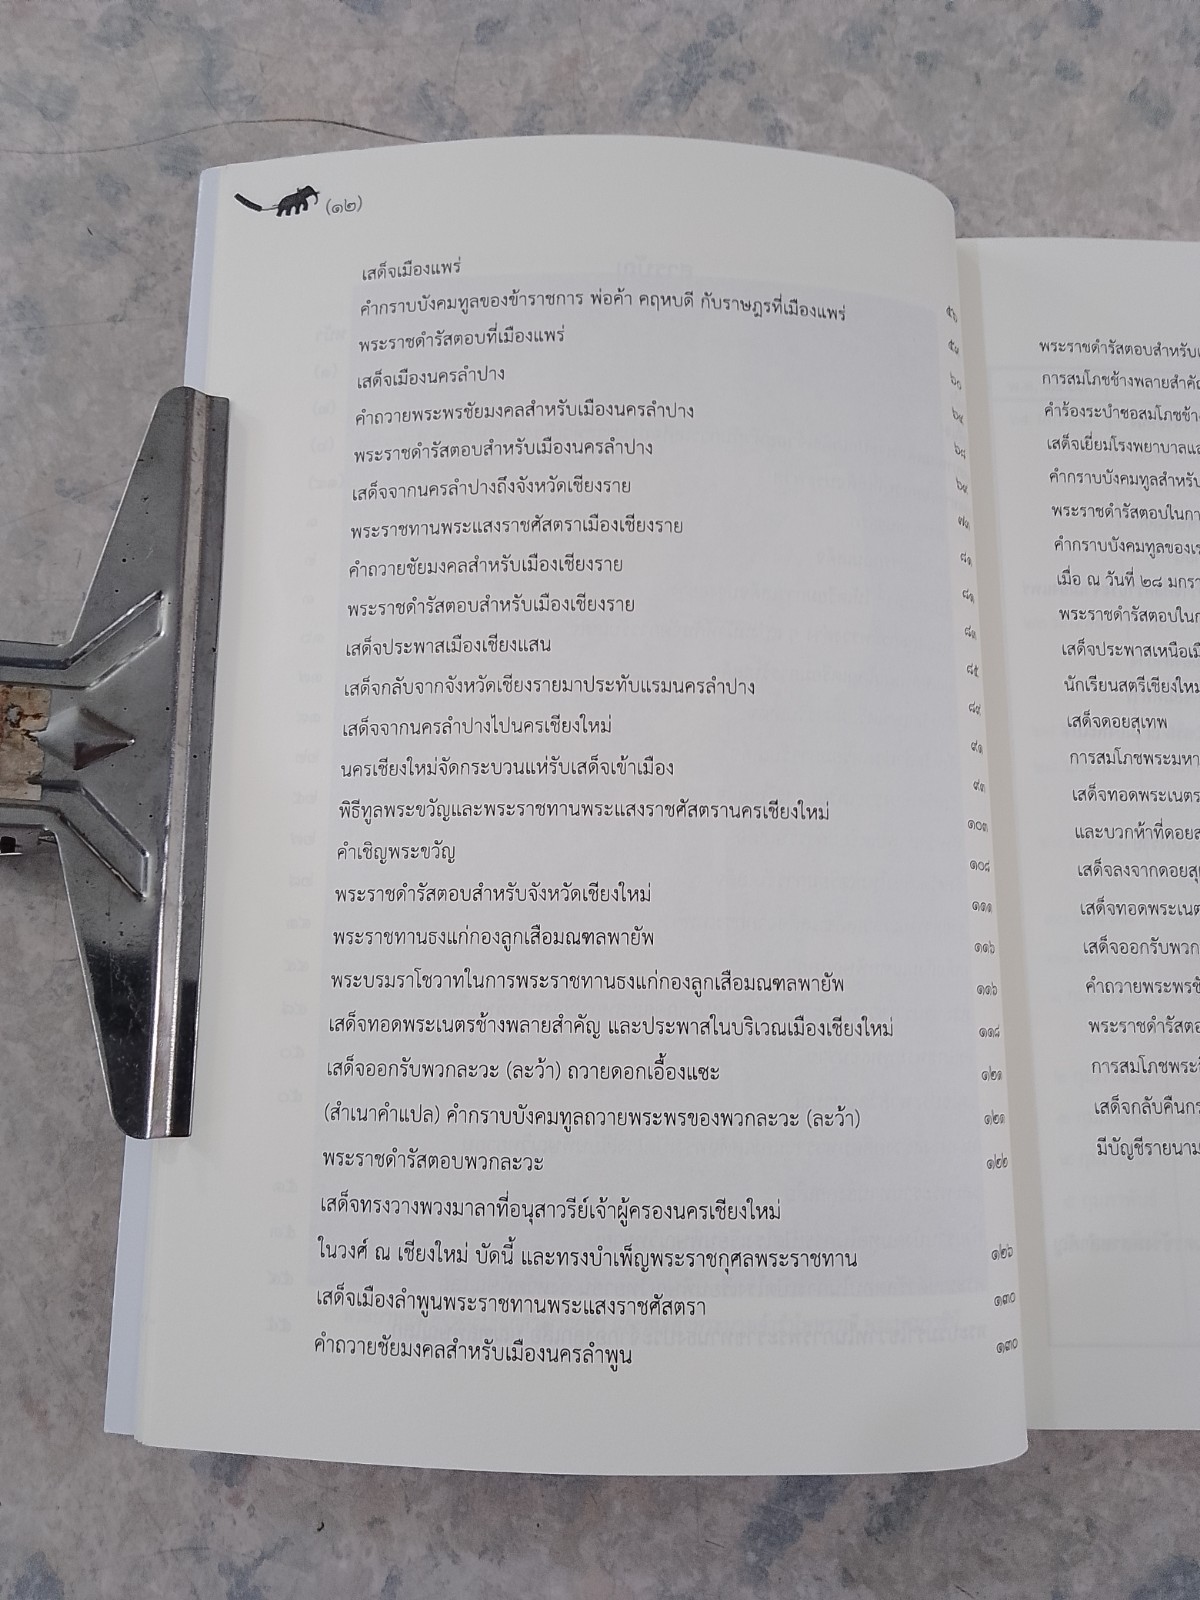 (๑๒)
เสด็จเมืองแพร่ ๕๖
คำกราบบังคมทูลของข้าราชการ พ่อค้า คฤหบดี กับราษฎรที่เมืองแพร่
พระราชดำรัสตอบที่เมืองแพร่ ๖๐
เสด็จเมืองนครลำปาง
คำถวายพระพรชัยมงคลสำหรับเมืองนครลำปาง ๖๘
พระราชดำรัสตอบสำหรับเมืองนครลำปาง ๖๙
เสด็จจากนครลำปางถึงจังหวัดเชียงราย ๗๓
พระราชทานพระแสงราชศัสตราเมืองเชียงราย ๘๑
คำถวายชัยมงคลสำหรับเมืองเชียงราย ๘๑
พระราชดำรัสตอบสำหรับเมืองเชียงราย ๘๓
เสด็จประพาสเมืองเชียงแสน ๘๕
เสด็จกลับจากจังหวัดเชียงรายมาประทับแรมนครลำปาง ๘๙
เสด็จจากนครลำปางไปนครเชียงใหม่ ๙๑
นครเชียงใหม่จัดกระบวนแห่รับเสด็จเข้าเมือง ๙๓
พิธีทูลพระขวัญและพระราชทานพระแสงราชศัสตรานครเชียงใหม่ ๑๐๓
คำเชิญพระขวัญ ๑๐๘
พระราชดำรัสตอบสำหรับจังหวัดเชียงใหม่ ๑๑๑
พระราชทานธงแก่กองลูกเสือมณฑลพายัพ ๑๑๖
พระบรมราโชวาทในการพระราชทานธงแก่กองลูกเสือมณฑลพายัพ ๑๑๖
เสด็จทอดพระเนตรช้างพลายสำคัญ และประพาสในบริเวณเมืองเชียงใหม่ ๑๑๘
เสด็จออกรับพวกละวะ (ละว้า) ถวายดอกเอื้องแซะ ๑๒๑
(สำเนาคำแปล) คำกราบบังคมทูลถวายพระพรของพวกละวะ (ละว้า) ๑๒๑
พระราชดำรัสตอบพวกละวะ ๑๒๒
เสด็จทรงวางพวงมาลาที่อนุสาวรีย์เจ้าผู้ครองนครเชียงใหม่
ในวงศ์ ณ เชียงใหม่ บัดนี้ และทรงบำเพ็ญพระราชกุศลพระราชทาน ๑๒๖
เสด็จเมืองลำพูนพระราชทานพระแสงราชศัสตรา ๑๓๐
คำถวายชัยมงคลสำหรับเมืองนครลำพูน ๑๓๐
พระราชดำรัสตอบสำหรับ
การสมโภชช้างพลายสำคัญ
คำร้องระบำซอสมโภชช้าง
เสด็จเยี่ยมโรงพยาบาล
คำกราบบังคมทูลสำหรับ
พระราชดำรัสตอบในกา
คำกราบบังคมทูลของ
เมื่อ ณ วันที่ ๒๘ มกรา
พระราชดำรัสตอบใน
เสด็จประพาสเหนือ
นักเรียนสตรีเชียงใหม่
เสด็จดอยสุเทพ
การสมโภชพระมหา
เสด็จทอดพระเนตร
และบวกห้าที่ดอย
เสด็จลงจากดอย
เสด็จทอดพระเนต
เสด็จออกรับพวก
คำถวายพระพร
พระราชดำรัสตอ
การสมโภชพระ
เสด็จกลับคืนกร
มีบัญชีรายนาม